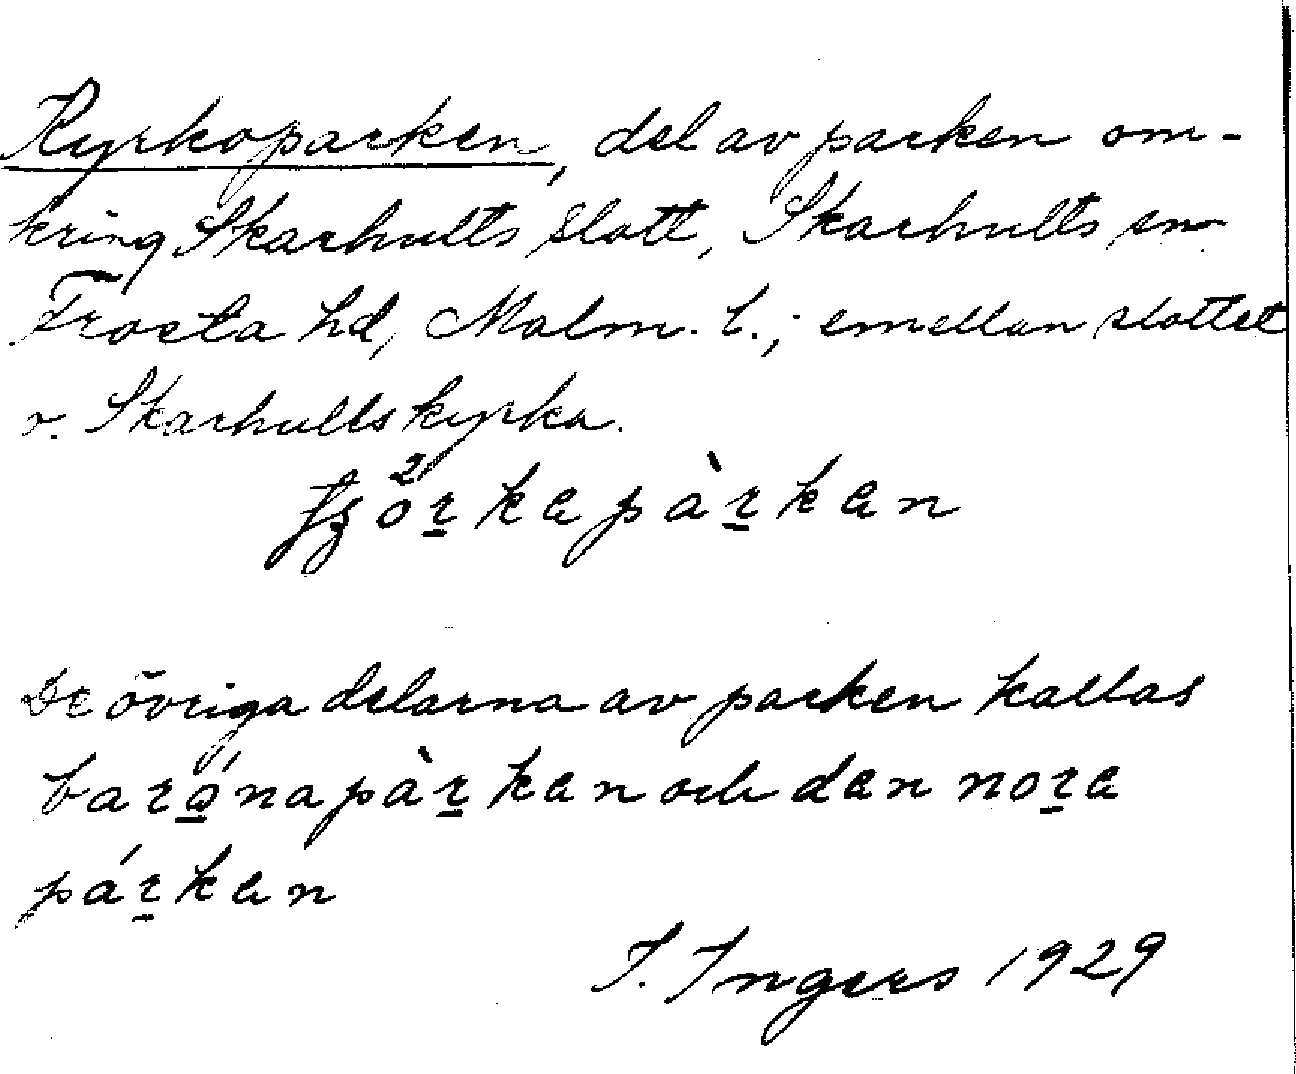 Kyrkoparken, del av parken om-
kring Skarhults slott, Skarhults sn
Frosta hd, Malm. l.; emellan slottet
o. Skarhults kyrka.
kapàr̠kan
De övriga delarna av parken kallas
barǫ́napàr̠kan och dan nor̠a
pár̠kan
I. Ingers 1929